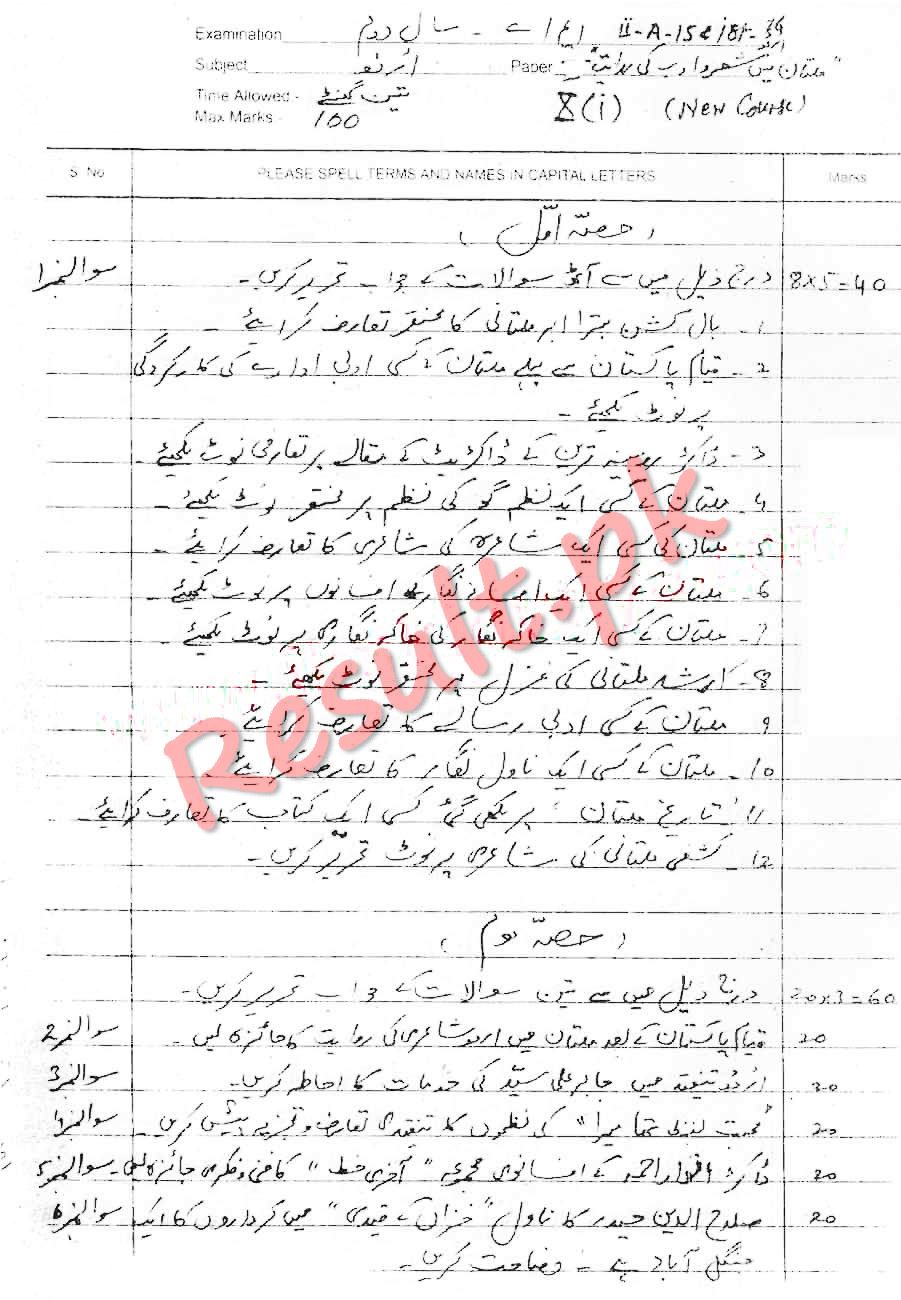 Examination ایم اے - سال دوم II-A-15
Subject اردو Paper: "ملتان میں شعر و ادب کی روایت"
Time Allowed:- تین گھنٹے X(i) (New Course)
Max Marks:- 100
S. No PLEASE SPELL TERMS AND NAMES IN CAPITAL LETTERS Marks
(حصہ اول)
سوال نمبر 1 درج ذیل میں سے آٹھ سوالات کے جواب تحریر کریں۔ 8x5=40
1- بال کشن بترا ابر ملتانی کا مختصر تعارف کرائیے۔
2- قیام پاکستان سے پہلے ملتان کے کسی ادبی ادارے کی کارکردگی
پر نوٹ لکھیئے۔
3- ڈاکٹر روبینہ ترین کے ڈاکٹریٹ کے مقالے پر تعارفی نوٹ لکھیئے۔
4- ملتان کے کسی ایک نظم گو کی نظم پر مختصر نوٹ لکھیئے۔
5- ملتان کی کسی ایک شاعرہ کی شاعری کا تعارف کرائیے۔
6- ملتان کے کسی ایک افسانہ نگار کے افسانوں پر نوٹ لکھیئے۔
7- ملتان کے کسی ایک خاکہ نگار کی خاکہ نگاری پر نوٹ لکھیئے۔
8- ارشد ملتانی کی غزل پر مختصر نوٹ لکھیئے۔
9- ملتان کے کسی ادبی رسالے کا تعارف کرائیے۔
10- ملتان کے کسی ایک ناول نگار کا تعارف کرائیے۔
11- "تاریخ ملتان" پر لکھی گئی کسی ایک کتاب کا تعارف کرائیے۔
12- کشفی ملتانی کی شاعری پر نوٹ تحریر کریں۔
(حصہ دوم)
درج ذیل میں سے تین سوالات کے جواب تحریر کریں۔ 20x3=60
سوال نمبر 2 قیام پاکستان کے بعد ملتان میں اردو شاعری کی روایت کا جائزہ لیں۔ 20
سوال نمبر 3 اردو تنقید میں جابر علی سید کی خدمات کا احاطہ کریں۔ 20
سوال نمبر 4 "محبت لفظ تھا میرا" کی نظموں کا تنقیدی تعارف و تجزیہ پیش کریں۔ 20
سوال نمبر 5 ڈاکٹر انوار احمد کے افسانوی مجموعہ "آخری خط" کا فنی و فکری جائزہ لیں۔ 20
سوال نمبر 6 صلاح الدین حیدر کا ناول "خزاں کے قیدی" میں کرداروں کا ایک 20
جنگل آباد ہے۔ وضاحت کریں۔
Result.pk